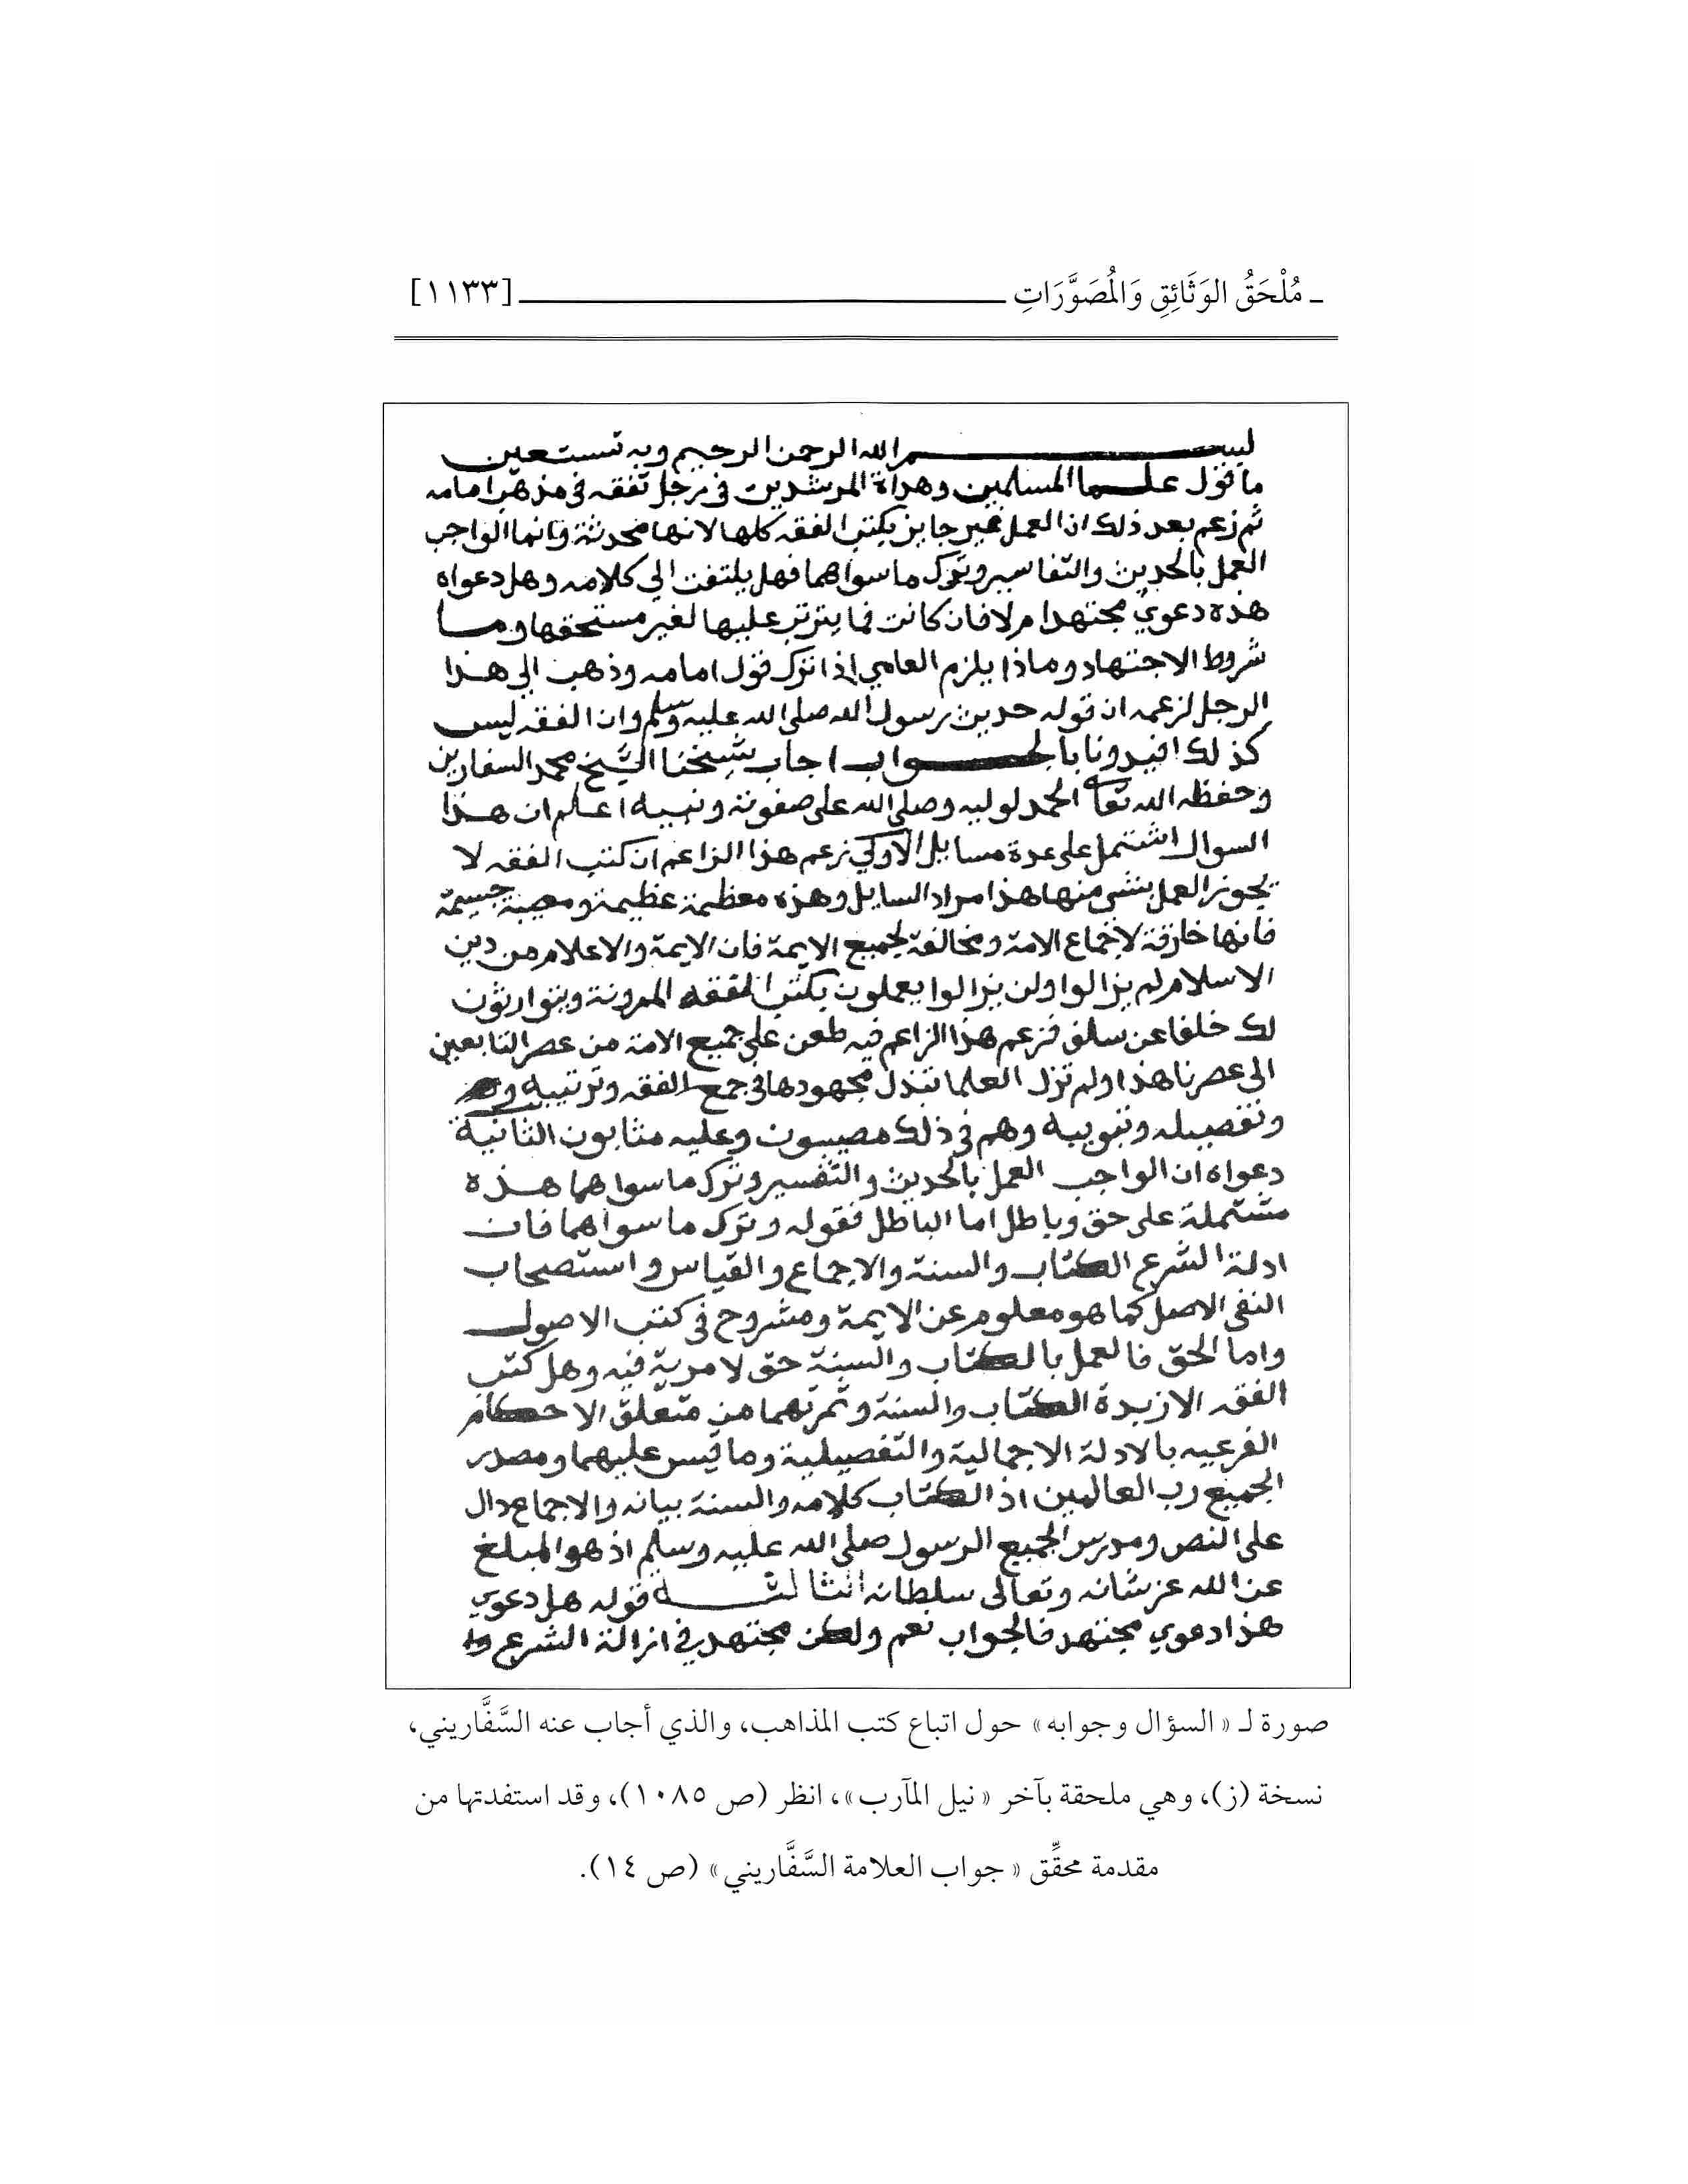 ـ مُلْحَقُ الوَثَائِقِ وَالمُصَوَّرَاتِ [١١٣٣]
بسم الله الرحمن الرحيم وبه نستعين
ما قول علما المسلمين وهداة المرشدين في رجل تفقه في مذهب امامه
ثم زعم بعد ذلك ان العمل غير جايز بكتب الفقه كلها لانها محدثة وانما الواجب
العمل بالحديث والتفاسير وترك ما سواهما فهل يلتفت الي كلامه وهل دعواه
هذه دعوي مجتهد ام لا فان كانت فما يترتب عليها لغير مستحقها وما
شروط الاجتهاد وماذا يلزم العامي اذا ترك قول امامه وذهب الي هذا
الرجل لزعمه ان قوله حديث رسول الله صلى الله عليه وسلم وان الفقه ليس
كذلك افيدونا بالجواب اجاب شيخنا الشيخ محمد السفاريني
وحفظه الله تعا الحمد لوليه وصلى الله على صفوته ونبيه اعلم ان هذا
السوال اشتمل على عدة مسايل الاولي زعم هذا الزاعم ان كتب الفقه لا
يجوز العمل بشي منها هذا مراد السايل وهذه معظمة عظيمة ومصيبة جسيمة
فانها خارقة لاجماع الامة ومخالفة لجميع الايمة فان الايمة والاعلام من دين
الاسلام لم يزالوا ولن يزالوا يعملون بكتب الفقه المدونة ويتوارثون
لك خلفا عن سلف فزعم هذا الزاعم فيه طعن على جميع الامة من عصر التابعين
الى عصرنا هذا ولم تزل العلما تبذل مجهودها في جمع الفقه وترتيبه
وتفصيله وتبويبه وهم في ذلك مصيبون وعليه مثابون الثانية
دعواه ان الواجب العمل بالحديث والتفسير وترك ما سواهما هذه
مشتملة على حق وباطل اما الباطل فقوله وترك ما سواهما فان
ادلة الشرع الكتاب والسنة والاجماع والقياس واستصحاب
النفي الاصل كما هو معلوم عن الايمة ومشروح في كتب الاصول
واما الحق فالعمل بالكتاب والسنة حق لا مرية فيه وهل كتب
الفقه الا زبدة الكتاب والسنة وثمرتهما من متعلق الاحكام
الفرعيه بالادلة الاجمالية والتفصيلية وما قيس عليهما ومصدر
الجميع رب العالمين اذ الكتاب كلامه والسنة بيانه والاجماع دال
على النص ومدرس الجميع الرسول صلى الله عليه وسلم اذ هو المبلغ
عن الله عز شانه وتعالى سلطانه الثالثة قوله هل دعوي
هذا دعوي مجتهد فالجواب نعم ولكن مجتهد في ازالة الشرع
صورة لـ « السؤال وجوابه » حول اتباع كتب المذاهب، والذي أجاب عنه السَّفَّاريني،
نسخة (ز)، وهي ملحقة بآخر « نيل المآرب »، انظر (ص ١٠٨٥)، وقد استفدتها من
مقدمة محقِّق « جواب العلامة السَّفَّاريني » (ص ١٤).